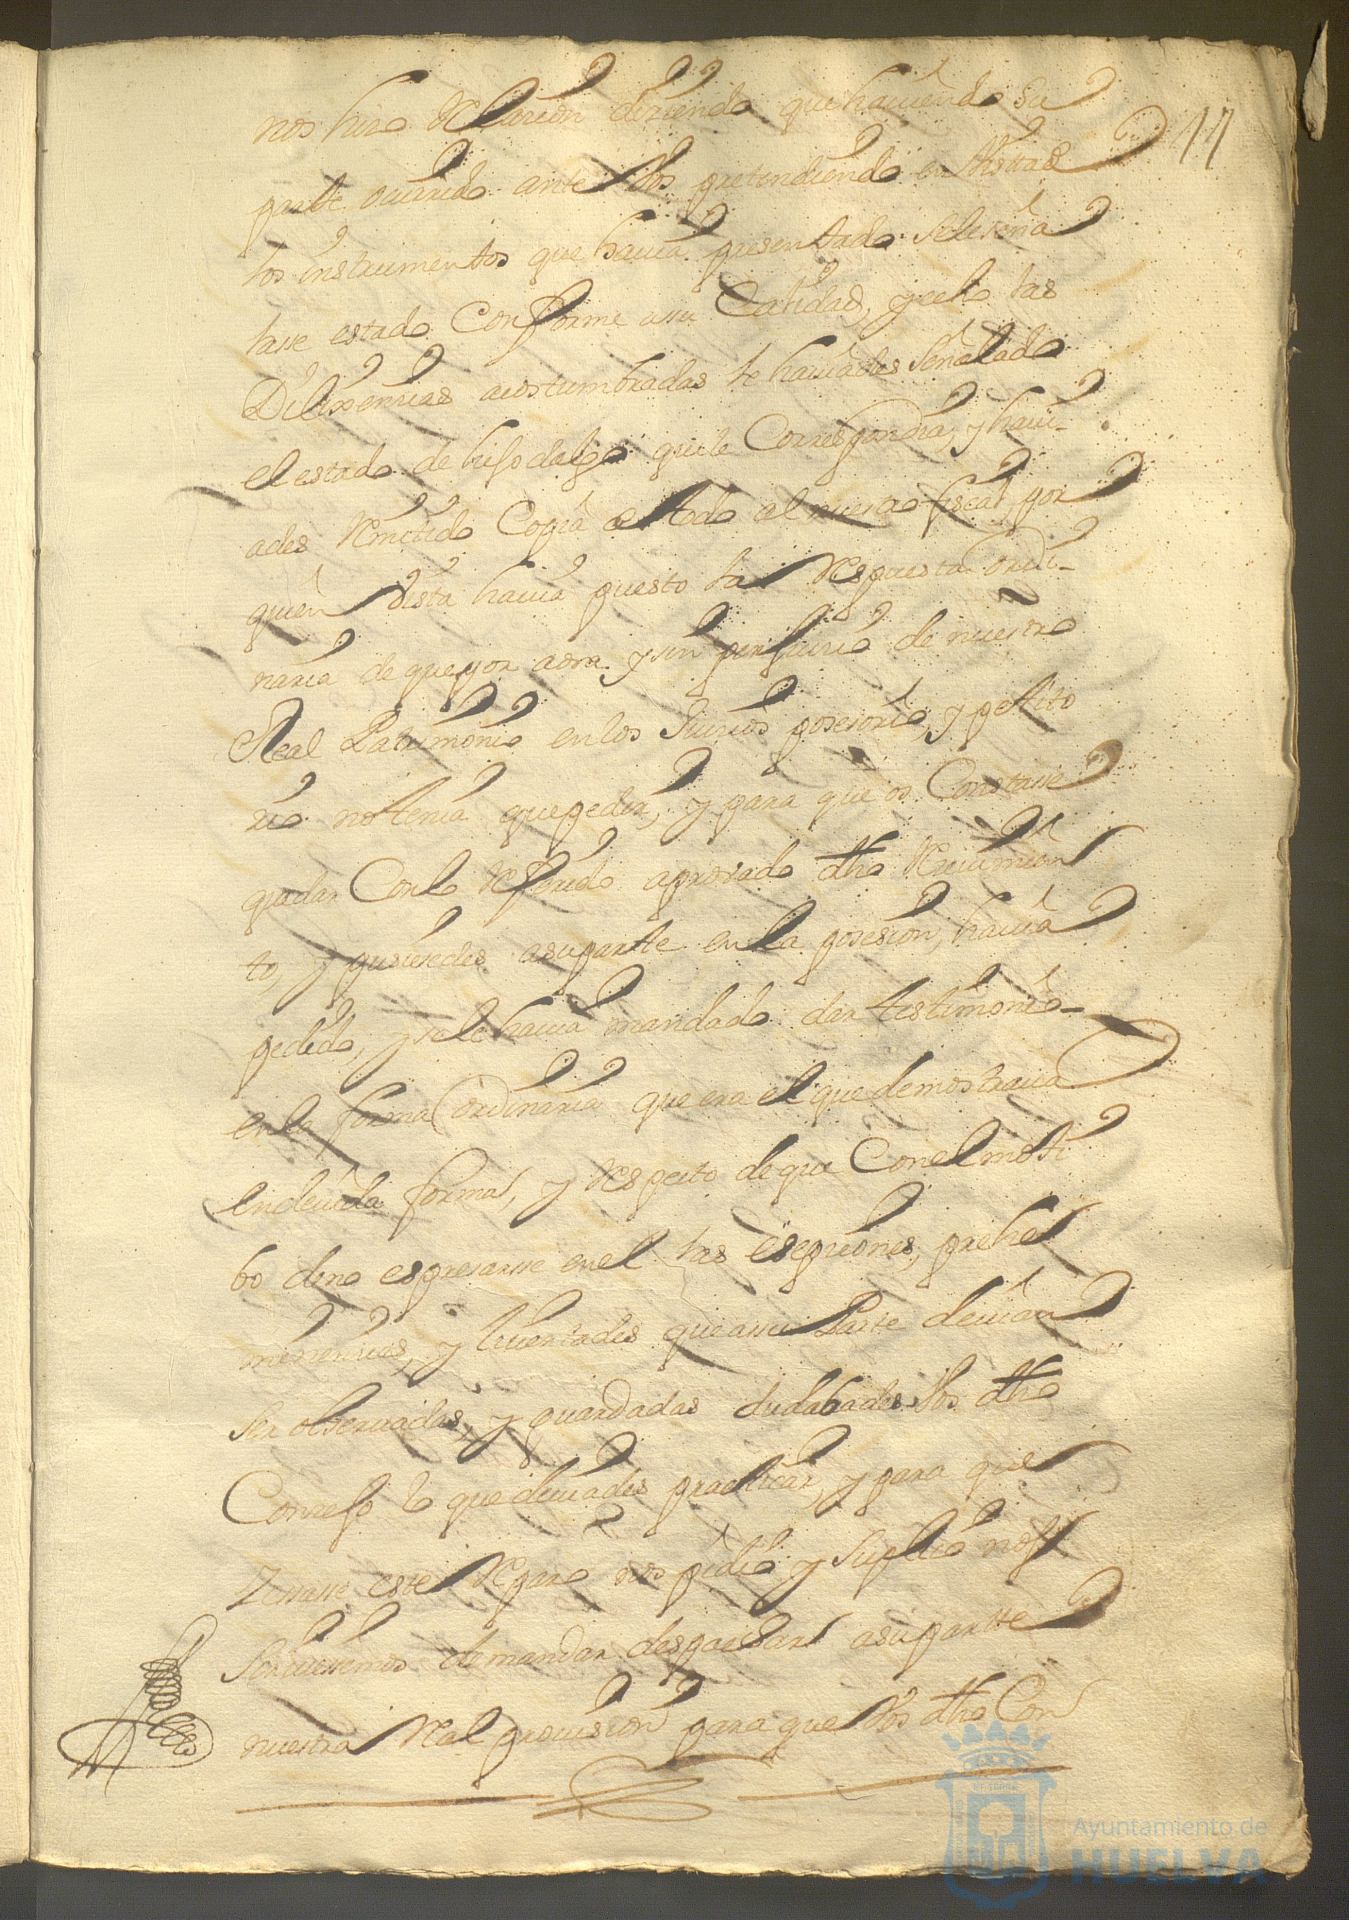 nos hizo Relacion diziendo que haviendo Su
parte ocurrido ante Vos pretendiendo en Vista de
los instrumentos que havia presentado Sele seña
lasse estado Conforme assu Calidad, y echo las
Dilixencias acostumbradas le haviades Señalado
el estado de hijodalgo que le Correspondia, y havi-
ades Remitido Copia de todo al nuestro fiscal por
quien Vista havia puesto la Respuesta Ordi-
naria de que por aora y sin perjuicio de nuestro
Real Patrimonio en los Juicios posesorio, y petito
rio no tenia que pedir, y para que os Constasse
quedar Con lo Referido aprovado dho Recivimien
to, y pusiesedes asuparte en la posesion, havia
pedido, y sele havia mandado dar testimonio
en la forma Ordinaria que era el que demostrava
en devida forma, y Respecto de que Con el moti
bo de no espresarse en el las esepciones, prehe
minencias, y livertades que assu Parte devian
Ser observadas, y guardadas dudabades Vos dho
Consejo lo que deviades practicar, y para que
Zesasse este Reparo nos pidio y Suplico nos
Sirviessemos de mandar despachar asuparte
nuestra Real provision para que Vos dho Con
11
Ayuntamiento de
HUELVA